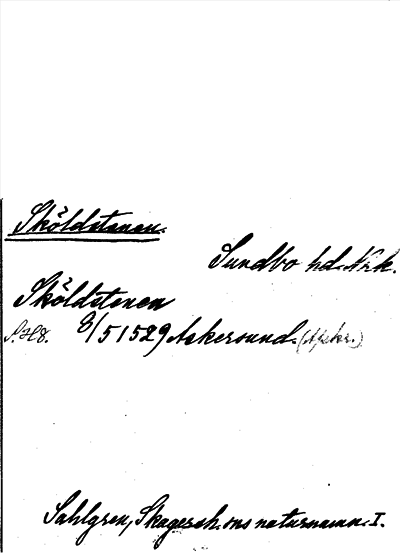 Sköldstenen.
Sundbo hd. Nrk.
Sköldstenen
8/5 1529 Askersund.
Sahlgren, Skagersh. ons naturnamn. I.